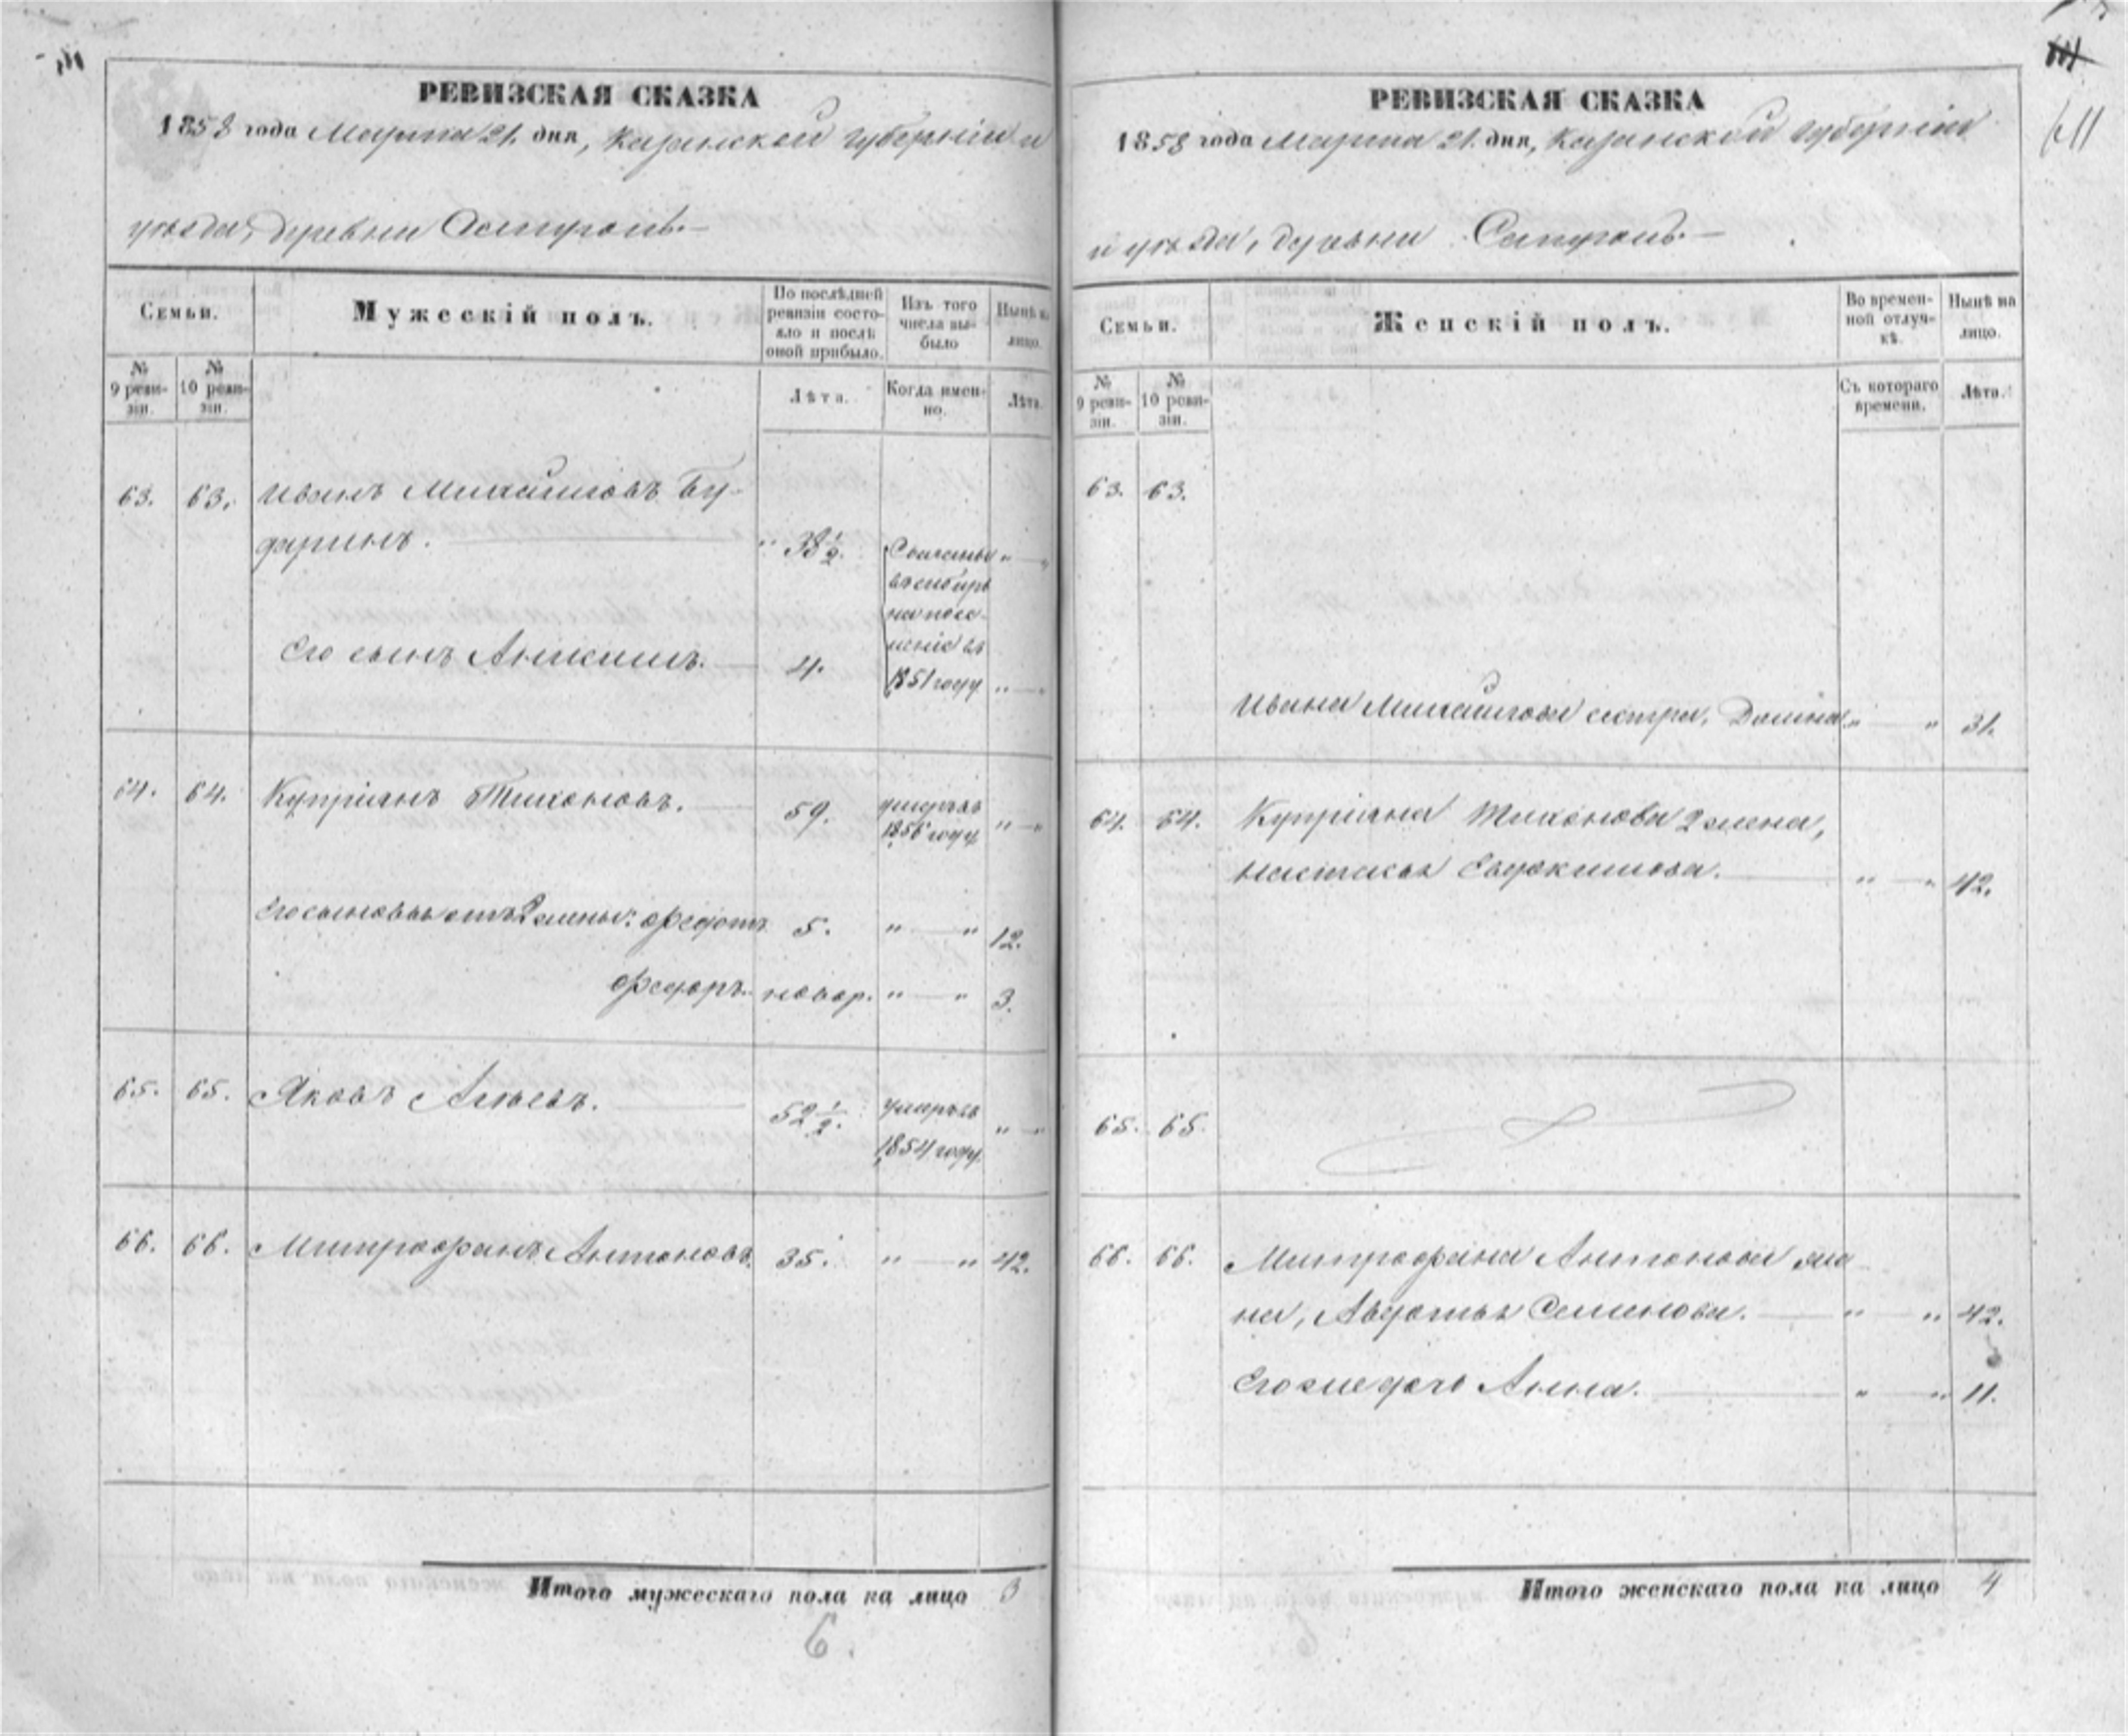 РЕВИЗСКАЯ СКАЗКА
1858 года Марта 21. дня, Казанской губерніи и
уѣзда, деревни
Семьи.
Мужескій полъ.
По послѣдней ревизіи состояло и послѣ оной прибыло.
Изъ того числа выбыло
Нынѣ на лицо.
№ 9 ревизіи.
№ 10 ревизіи.
Лѣта.
Когда именно.
Лѣта.
63. 63. Иванъ Михайловъ Бу-
даринъ. 38 1/2. Сосланы " — "
въ сибирь
на посе-
леніе въ
Его сынъ 4. 1851 году " — "
64. 64. Купріянъ Тихоновъ. 59. умеръ въ 1856 году " — "
Его сыновья отъ 2 жены: Федотъ 5. " — " 12.
Федоръ. новор. " — " 3.
65. 65. Яковъ 52 1/2. умеръ въ 1854 году " — "
66. 66. Митрофанъ Антоновъ. 35. " — " 42.
Итого мужескаго пола на лицо 3
6.
РЕВИЗСКАЯ СКАЗКА
1858 года Марта 21. дня, Казанской губерніи
и уѣзда, деревни
Семьи.
Женскій полъ.
Во временной отлучкѣ.
Нынѣ на лицо.
№ 9 ревизіи.
№ 10 ревизіи.
Съ котораго времени.
Лѣта.
63. 63.
Ивана Михайлова сестра, " — " 31.
64. 64. Купріяна Тихонова 2 жена,
Настасья Евдокимова. " — " 42.
65. 65.
66. 66. Митрофана Антонова же
на, Авдотья Семенова. " — " 42.
Его же дочь Анна. " — " 11.
Итого женскаго пола на лицо 4